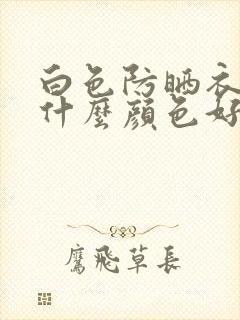 白色防晒衣
什麼顔色好
鷹飛草長